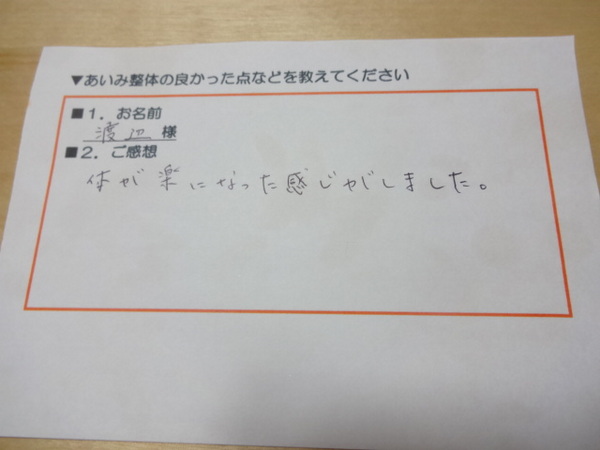 ▼あいみ整体の良かった点などを教えてください
■1．お名前
渡辺 様
■2．ご感想
体が楽になった感じがしました。